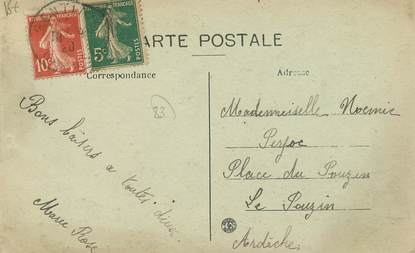 15f
10c
5c
POSTES
POSTES
CARTE POSTALE
Correspondance
Adresse
83
Bons baisers a
toutes deux
Marie Rose
Mademoiselle Noémie
Place du Pouzin
Le Pouzin
Ardèche